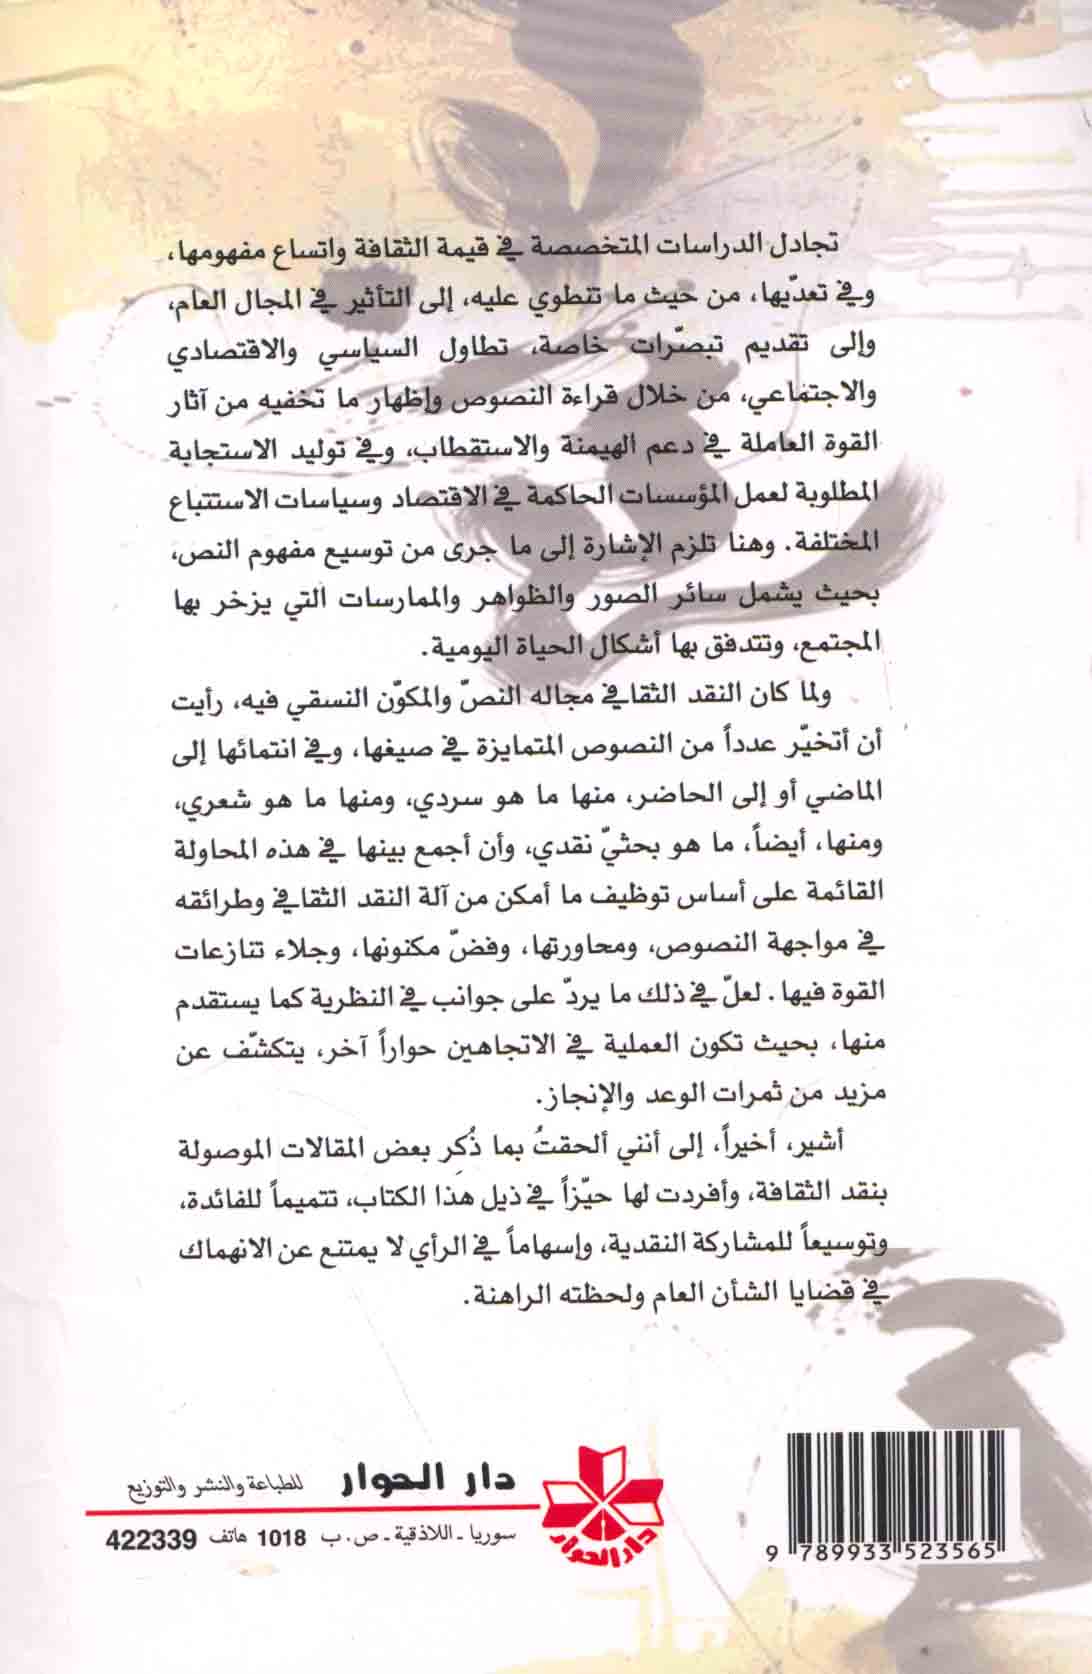 تجادل الدراسات المتخصصة في قيمة الثقافة واتساع مفهومها،
وفي تعدّيها، من حيث ما تنطوي عليه، إلى التأثير في المجال العام،
وإلى تقديم تبصّرات خاصة، تطاول السياسي والاقتصادي
والاجتماعي، من خلال قراءة النصوص وإظهار ما تخفيه من آثار
القوة العاملة في دعم الهيمنة والاستقطاب، وفي توليد الاستجابة
المطلوبة لعمل المؤسسات الحاكمة في الاقتصاد وسياسات الاستتباع
المختلفة. وهنا تلزم الإشارة إلى ما جرى من توسيع مفهوم النص،
بحيث يشمل سائر الصور والظواهر والممارسات التي يزخر بها
المجتمع، وتتدفق بها أشكال الحياة اليومية.
ولما كان النقد الثقافي مجاله النصّ والمكوّن النسقي فيه، رأيت
أن أتخيّر عدداً من النصوص المتمايزة في صيغها، وفي انتمائها إلى
الماضي أو إلى الحاضر، منها ما هو سردي، ومنها ما هو شعري،
ومنها، أيضاً، ما هو بحثيّ نقدي، وأن أجمع بينها في هذه المحاولة
القائمة على أساس توظيف ما أمكن من آلة النقد الثقافي وطرائقه
في مواجهة النصوص، ومحاورتها، وفضّ مكنونها، وجلاء تنازعات
القوة فيها. لعلّ في ذلك ما يردّ على جوانب في النظرية كما يستقدم
منها، بحيث تكون العملية في الاتجاهين حواراً آخر، يتكشّف عن
مزيد من ثمرات الوعد والإنجاز.
أشير، أخيراً، إلى أنني ألحقتُ بما ذُكِر بعض المقالات الموصولة
بنقد الثقافة، وأفردت لها حيّزاً في ذيل هذا الكتاب، تتميماً للفائدة،
وتوسيعاً للمشاركة النقدية، وإسهاماً في الرأي لا يمتنع عن الانهماك
في قضايا الشأن العام ولحظته الراهنة.
دار الحوار للطباعة والنشر والتوزيع
سوريا - اللاذقية - ص. ب 1018 هاتف 422339
دار الحوار
9 789933 523565